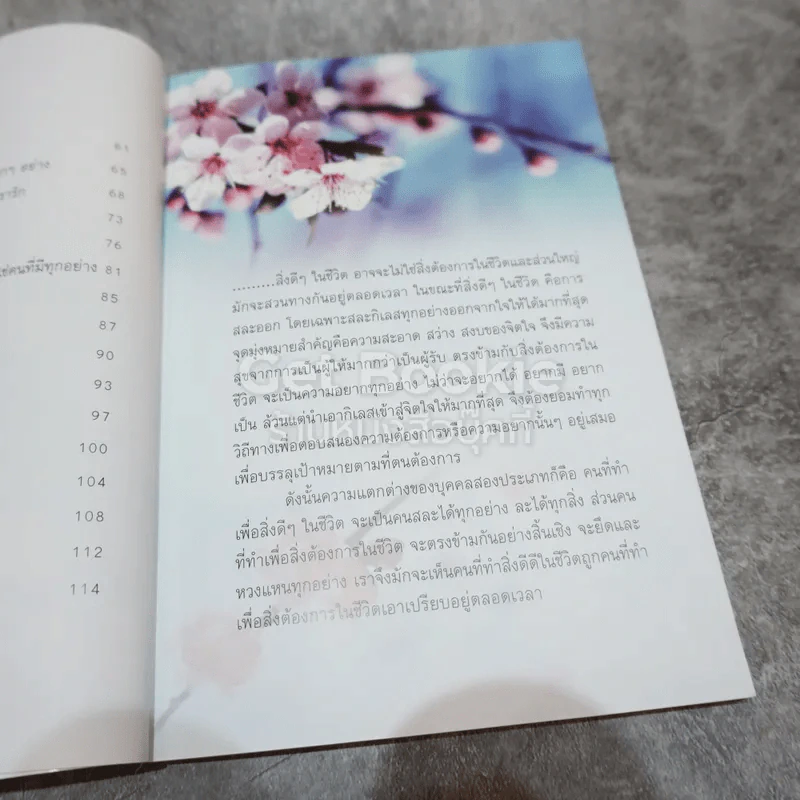 61
กๆ อย่าง 65
รารัก 68
73
76
ใช่คนที่มีทุกอย่าง 81
85
87
90
93
97
100
104
108
112
114
.........สิ่งดีๆ ในชีวิต อาจจะไม่ใช่สิ่งต้องการในชีวิตและส่วนใหญ่
มักจะสวนทางกันอยู่ตลอดเวลา ในขณะที่สิ่งดีๆ ในชีวิต คือการ
สละออก โดยเฉพาะสละกิเลสทุกอย่างออกจากใจให้ได้มากที่สุด
จุดมุ่งหมายสำคัญคือความสะอาด สว่าง สงบของจิตใจ จึงมีความ
สุขจากการเป็นผู้ให้มากกว่าเป็นผู้รับ ตรงข้ามกับสิ่งต้องการใน
ชีวิต จะเป็นความอยากทุกอย่าง ไม่ว่าจะอยากได้ อยากมี อยาก
เป็น ล้วนแต่นำเอากิเลสเข้าสู่จิตใจให้มากที่สุด จึงต้องยอมทำทุก
วิถีทางเพื่อตอบสนองความต้องการหรือความอยากนั้นๆ อยู่เสมอ
เพื่อบรรลุเป้าหมายตามที่ตนต้องการ
ดังนั้นความแตกต่างของบุคคลสองประเภทก็คือ คนที่ทำ
เพื่อสิ่งดีๆ ในชีวิต จะเป็นคนสละได้ทุกอย่าง ละได้ทุกสิ่ง ส่วนคน
ที่ทำเพื่อสิ่งต้องการในชีวิต จะตรงข้ามกันอย่างสิ้นเชิง จะยึดและ
หวงแหนทุกอย่าง เราจึงมักจะเห็นคนที่ทำสิ่งดีดีในชีวิตถูกคนที่ทำ
เพื่อสิ่งต้องการในชีวิตเอาเปรียบอยู่ตลอดเวลา
Get Bookie
ร้านหนังสือบุ๊คกี้